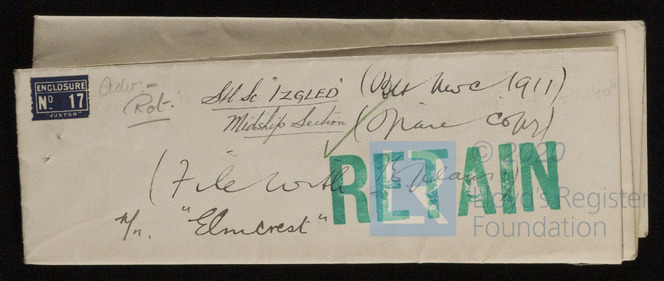 ENCLOSURE
No. 17
"JUSTSO"
Adv:-
Rot.
Stl Sc "IZGLED" (Blt Nwc 1911)
Midship Section (Spare copy)
(File with plans)
n/n. "Elmcrest"
RETAIN
© 2020
Lloyd's Register
Foundation